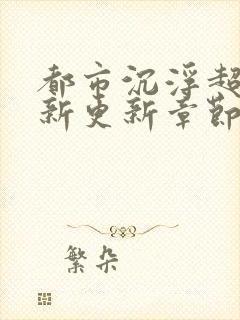 都市沉浮超
新更新章節
繁朵